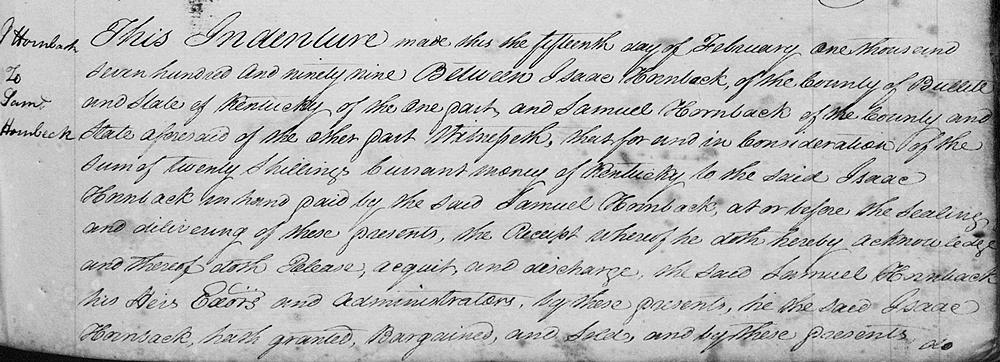 I Hornback
To
Saml
Hornbeck
This Indenture made this the fifteenth day of February one thousand
seven hundred and ninety nine Between Isaac Hornback, of the County of Bullitt
and State of Kentucky of the One part and Samuel Hornback of the County and
State aforesaid of the other part Witnesseth, that for and in Consideration of the
sum of twenty Shillings Currant money of Kentucky to the said Isaac
Hornback in hand paid by the said Samuel Hornback, at or before the sealing
and delivering of these presents, the Receipt whereof he doth hereby acknowledge
and thereof doth Release, acquit and discharge, the said Samuel Hornback
his Heirs Exōrs and Administrators, by these presents, he the said Isaac
Hornback, hath granted, Bargained, and Sold, and by these presents
do